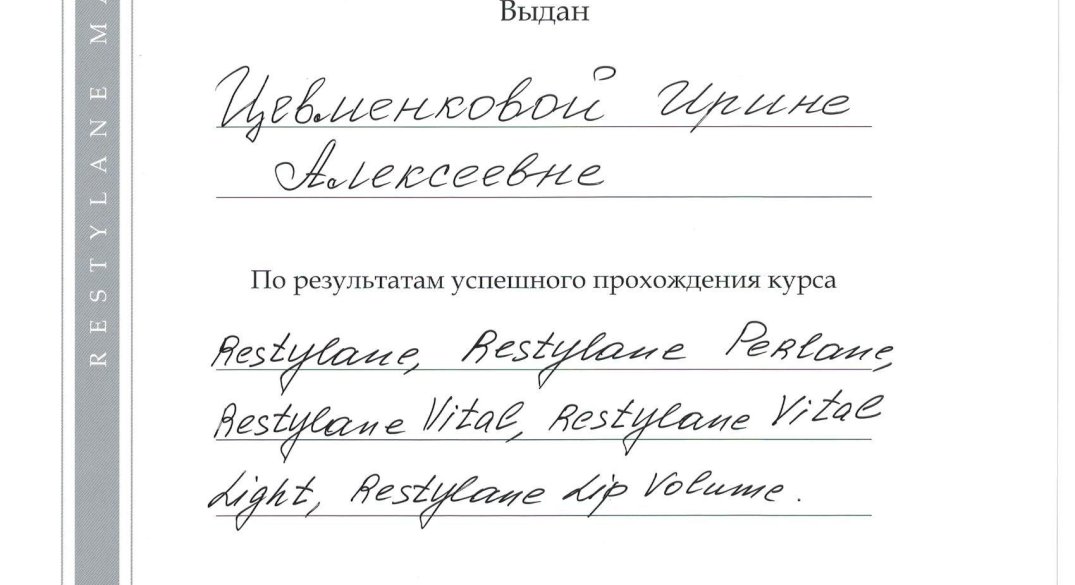 RESTYLANE MA
Выдан
Цевменковой Ирине
Алексеевне
По результатам успешного прохождения курса
Restylane, Restylane Perlane,
Restylane Vital, Restylane Vital
Light, Restylane Lip Volume.